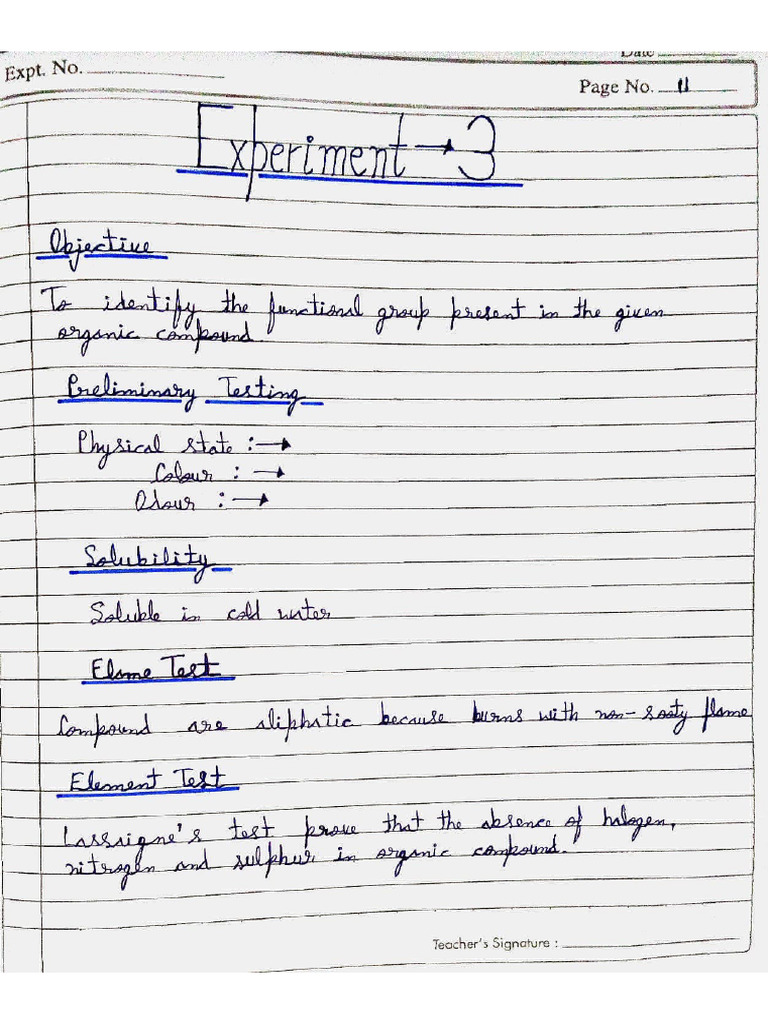 Date
Expt. No.
Page No. 11
Experiment → 3
Objective
To identify the functional group present in the given
organic compound.
Preliminary Testing
Physical state :→
Colour : →
Odour : →
Solubility
Soluble in cold water
Flame Test
Compound are aliphatic because burns with non-sooty flame
Element Test
Lassaigne's test prove that the absence of halogen,
nitrogen and sulphur in organic compound.
Teacher's Signature :